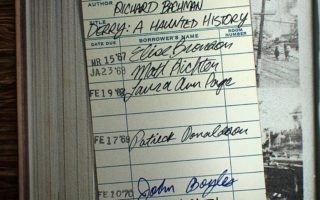 AUTHOR RICHARD BACHMAN
TITLE
DERRY: A HAUNTED HISTORY
DATE DUE BORROWER'S NAME ROOM NUMBER
MR 15 '67
JA 23 '68 Matt Richter
FE 1 9 '68 Laura Ann Page
FE 17 '69 Patrick Donaldson
FE 10 70 John Boyles